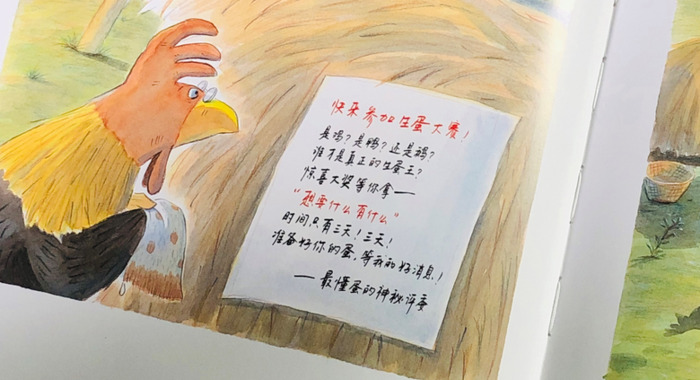 快来参加生蛋大赛！
是鸡？是鸭？还是鹅？
谁才是真正的生蛋王？
惊喜大奖等你拿——
“想要什么有什么”
时间只有三天！三天！
准备好你的蛋，等我的好消息！
——最懂蛋的神秘评委